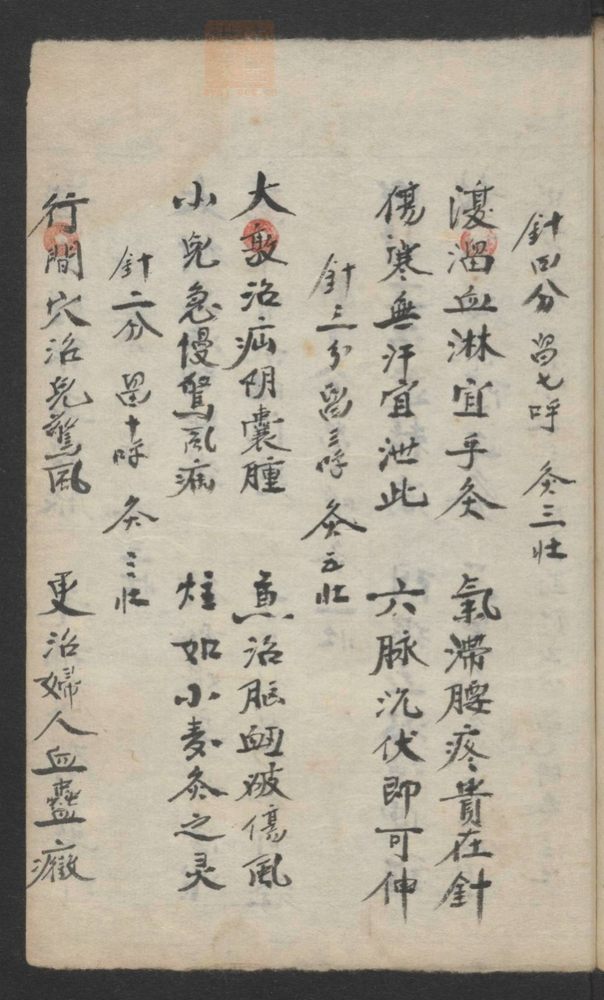 針四分 畄七呼 灸三壮
溲溺血淋宜乎灸 氣滯腰疼貴在針
傷寒無汗宜泄此 六脉沉伏即可伸
針三分 畄三呼 灸五壮
大敦治疝阴囊腫 兼治脳衄破傷風
小兒急慢驚風病 炷如小麦灸之灵
針二分 畄十呼 灸三壮
行間穴治兒驚風 更治婦人血蠱癥